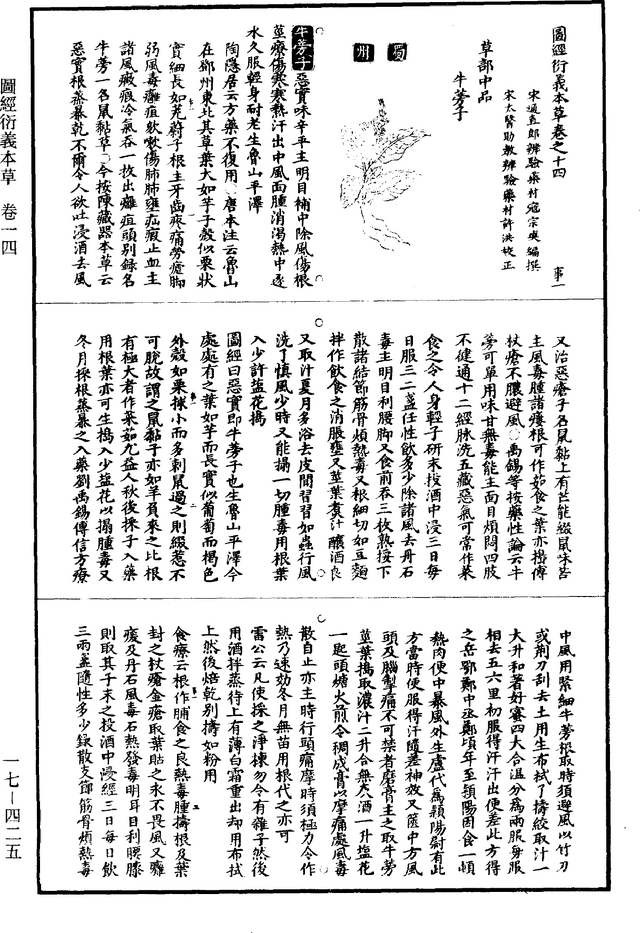 圖經衍義本草卷之十四
事一
宋通直郎辨驗藥材寇宗奭編撰
宋太醫助教辨驗藥材許洪校正
草部中品
牛蒡子
蜀州
牛蒡子惡實味辛平主明目補中除風傷根
莖療傷寒寒熱汗出中風面腫消渴熱中逐
水久服輕身耐老生魯山平澤
陶隱居云方藥不復用○唐本注云魯山
在鄧州東北其草葉大如芋子殼似栗狀
實細長如茺蔚子根主牙齒疼痛勞瘧腳
弱風毒癰疽欬嗽傷肺肺壅疝瘕止血主
諸風癥瘕冷氣吞一枚出癰疽頭別錄名
牛蒡一名鼠黏草○今按陳藏器本草云
惡實根蒸暴乾不爾令人欲吐浸酒去風
又治惡瘡子名鼠黏上有芒能綴鼠味苦
主風毒腫諸瘻根可作茹食之葉亦擣傅
杖瘡不膿避風○禹錫等按藥性論云牛
蒡可單用味甘無毒能主面目煩悶四肢
不健通十二經脉洗五藏惡氣可常作菜
食之令人身輕子研末投酒中浸三日每
日服三二盞任性飲多少除諸風去丹石
毒主明目利腰腳又食前吞三枚熟挼下
散諸結節筋骨煩熱毒又根細切如豆麵
拌作飲食之消脹壅又莖葉煑汁釀酒良
又取汁夏月多浴去皮間習習如蟲行風
洗了慎風少時又能搨一切腫毒用根葉
入少許塩花搗
圖經曰惡實即牛蒡子也生魯山平澤今
處處有之葉如芋而長實似葡萄而褐色
外殼如栗梂小而多刺鼠過之則綴惹不
可脫故謂之鼠黏子亦如羊負來之比根
有極大者作菜茹尤益人秋後採子入藥
用根葉亦可生搗入少塩花以搨腫毒又
冬月採根蒸暴之入藥劉禹錫傳信方療
中風用緊細牛蒡根取時須避風以竹刀
或荆刀刮去土用生布拭了擣絞取汁一
大升和著好蜜四大合溫分為兩服每服
相去五六里初服得汗汗出便差此方得
之岳鄂鄭中丞鄭頃年至潁陽因食一頓
熱肉便中暴風外生盧氏為潁陽尉有此
方當時便服得汗隨差神效又篋中方風
頭及腦掣痛不可禁者磨膏主之取牛蒡
莖葉搗取濃汁二升合無灰酒一升塩花
一匙頭煻火煎令稠成膏以摩痛處風毒
散自止亦主時行頭痛摩時須極力令作
熱乃速効冬月無苗用根代之亦可
雷公云凡使採之淨揀勿令有雜子然後
用酒拌蒸待上有薄白霜重出却用布拭
上然後焙乾別擣如粉用
食療云根作脯食之良熱毒腫擣根及葉
封之杖瘡金瘡取葉貼之永不畏風又癱
瘓及丹石風毒石熱發毒明耳目利腰膝
則取其子末之投酒中浸經三日每日飲
三兩盞隨性多少錄散支節筋骨煩熱毒
圖經衍義本草 卷一四
一七—四二五